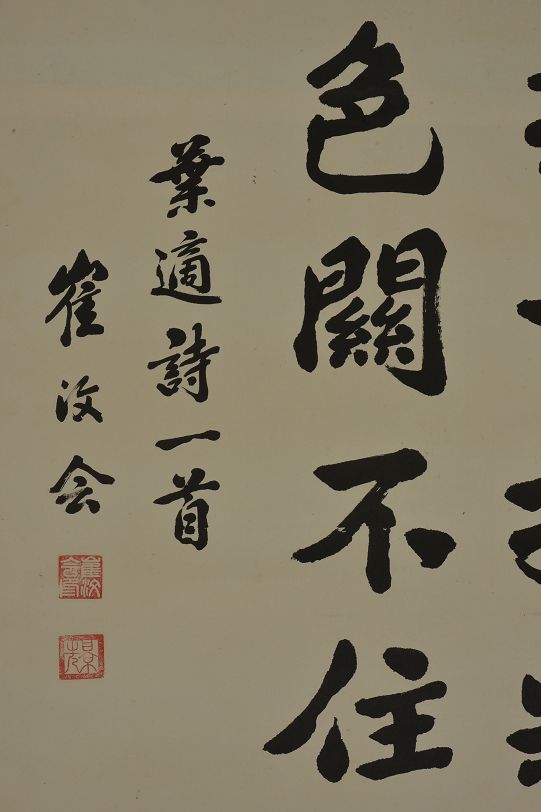 色關不住
葉適詩一首
崔汝会